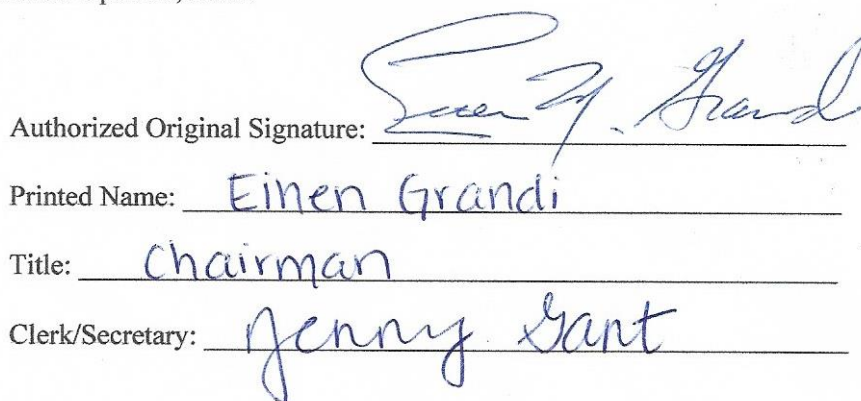 Authorized Original Signature:
Printed Name: Einen Grandi
Title: Chairman
Clerk/Secretary: Jenny Gant